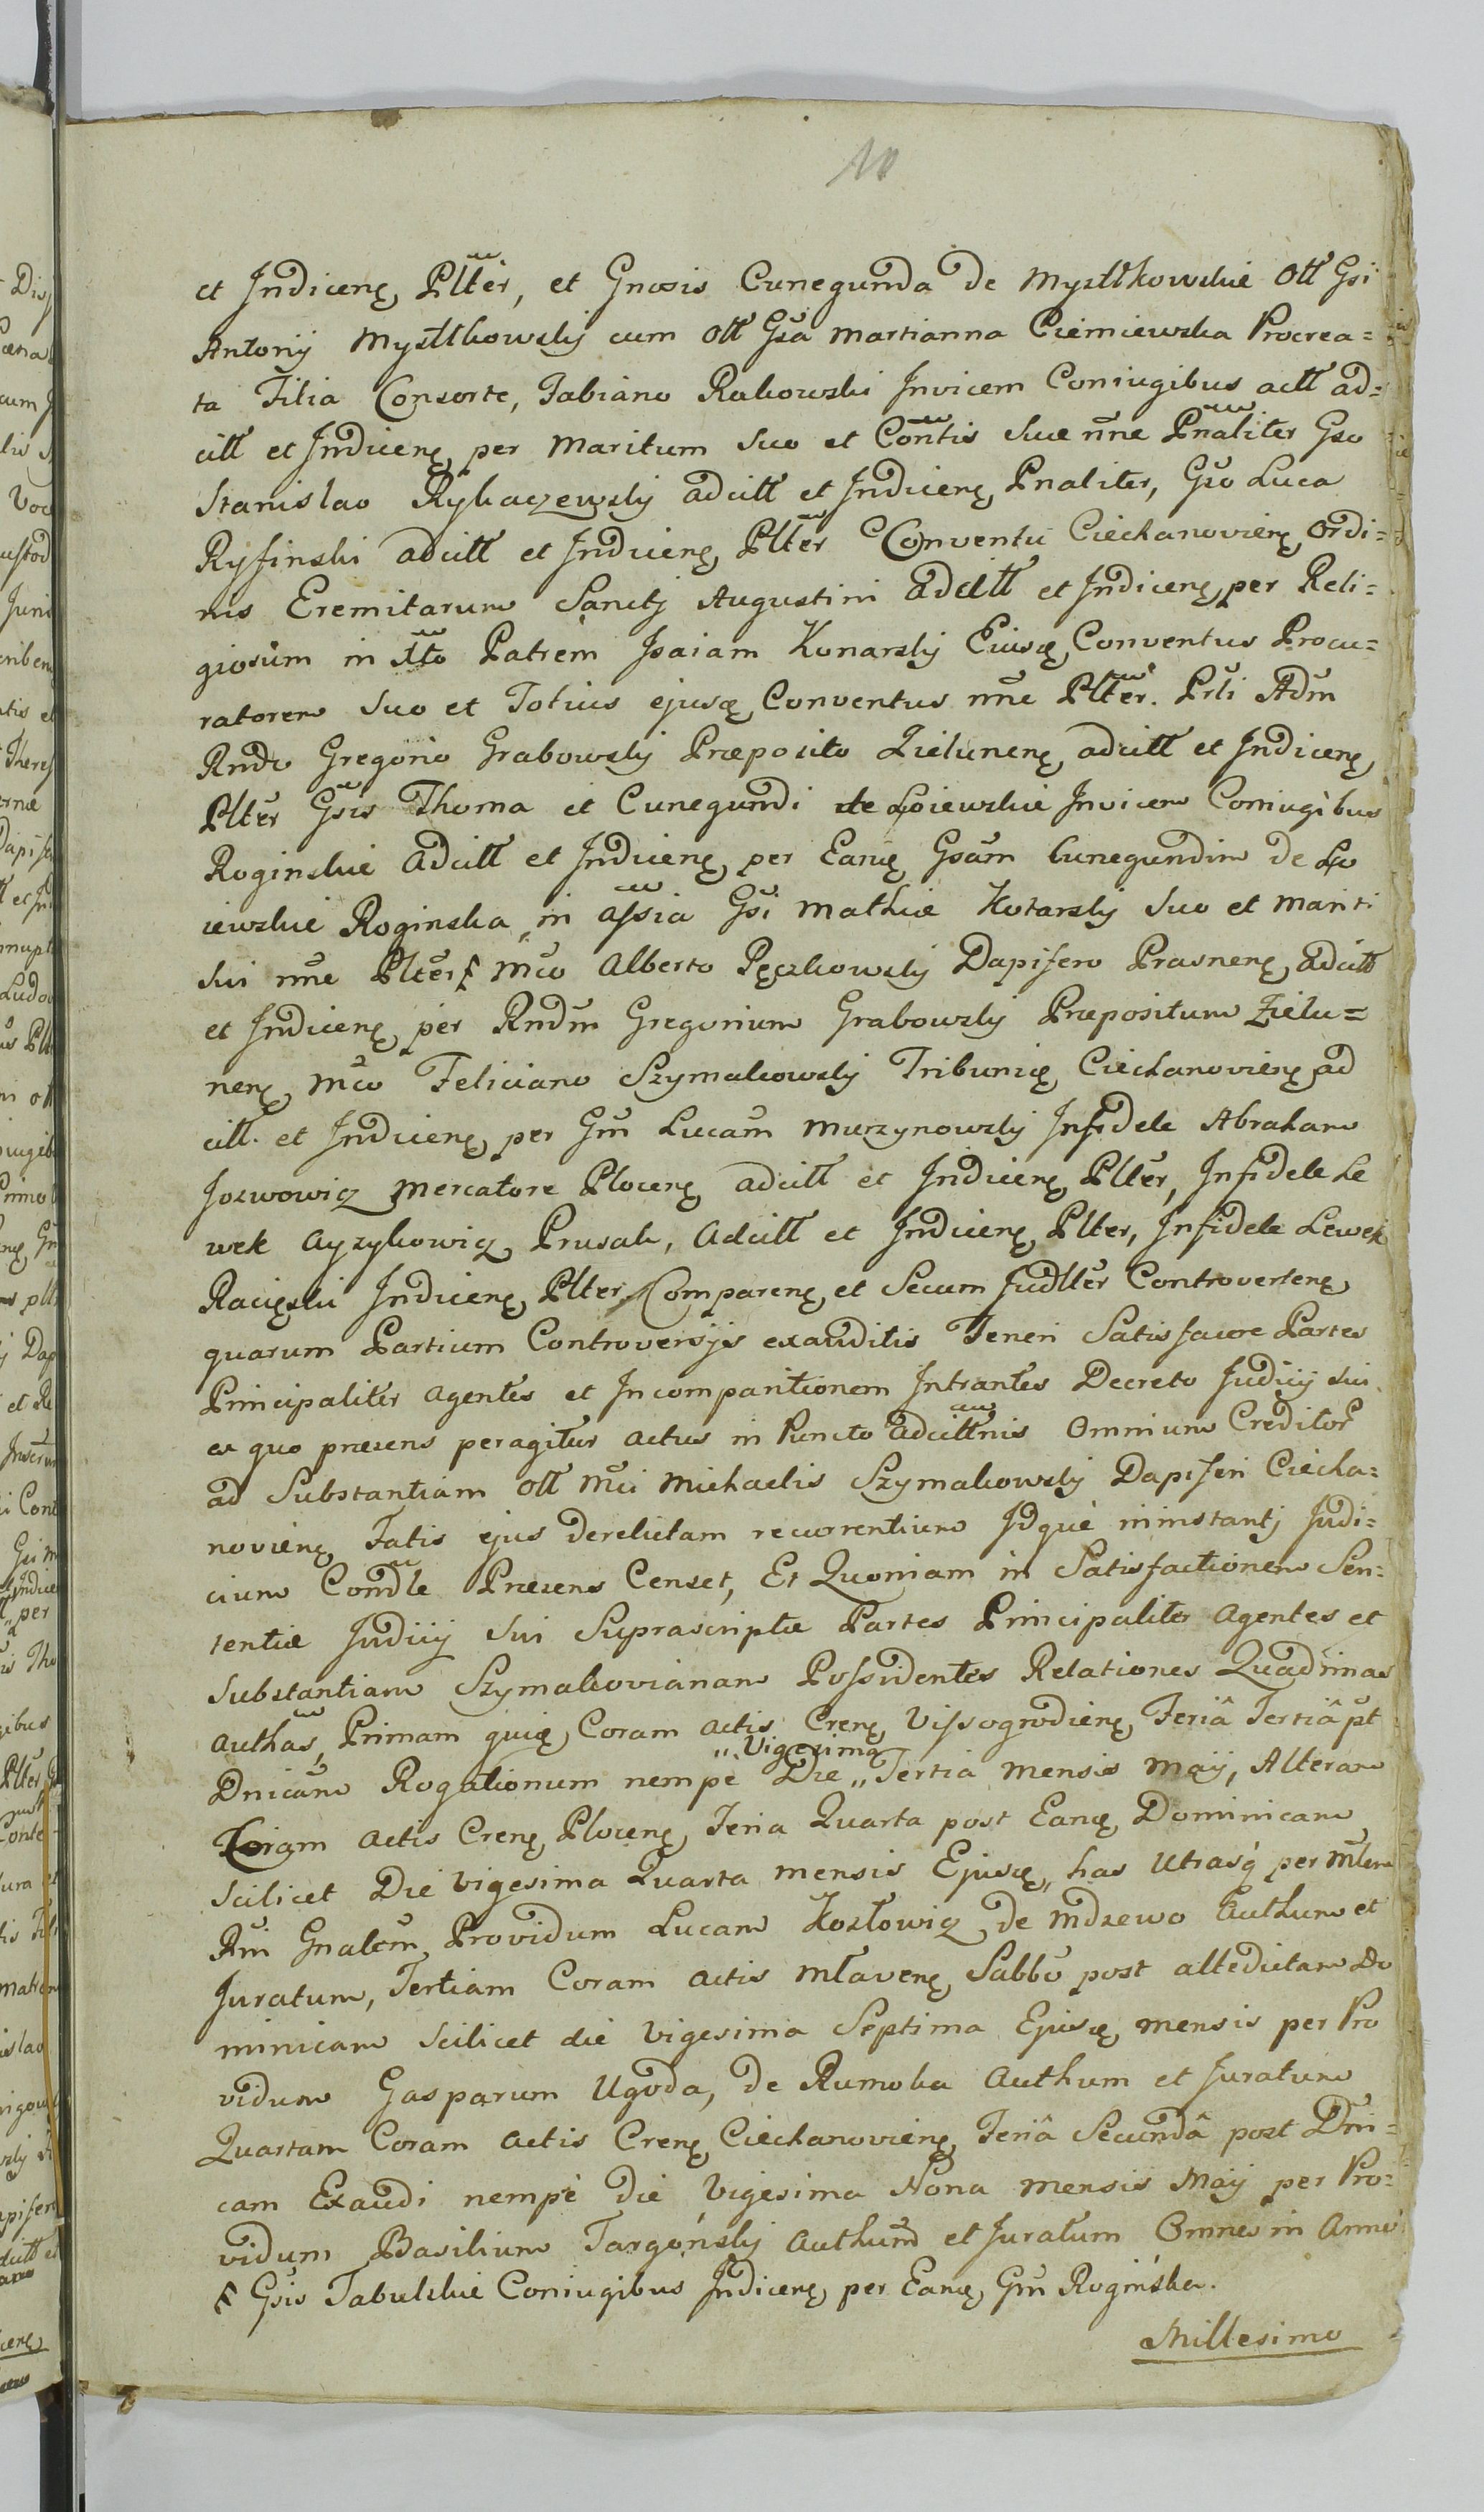 10
et Indicenę Plltėr, et Gnosis Cunegunda de Mysttkowskie Ott Gsi
Antonij Mysttkowskij cum Ott Gsa Martianna Ciemiewska Procrea=
ta Filia Consorte, Fabiano Rakowski Invicem Coniugibus actt ad=
citt et Indicenę per Maritum Suo et Contis Suae nne Pnaliter Gso
Stanislao Rykaczewskij adcitt et Indicenę Pnaliter, Gso Luca
Ryfinski adcitt et Indicenę Plter Conventu Ciechanovienę Ordi=
nis Eremitarum Sanctj Augustini Adcitt et Indicenę per Reli=
giosum in Xto Patrem Isaiam Konarskij Eiusdę Conventus Procu=
ratorem Suo et Totius ejusdę Conventus nne Plter. Prli Adm
Rndo Gregorio Grabowskij Praeposito Zielunenę adcitt et Indicenę
Plter Gsis Thoma et Cunegundi de Łoiewskie Invicem Coniugibus
Roginskie Adcitt et Indicenę per Eandę Gsam Cunegundim de Ło
iewskie Roginska in assia Gsi Mathiae Kotarskij Suo et Mariti
Sui nne Plter ꝭ Mco Alberto Pęczkowskij Dapifero Prasnenę Adcitt
et Indicenę per Rndm Gregorium Grabowskij Praepositum Zielu=
nenę Mco Feliciano Szymakowskij Tribunidę Ciechanovienę ad
citt. et Indicenę per Gm Lucam Murzynowskij Infidele Abraham
Jozwowicz Mercatore Plocenę adcitt et Indicenę Plter, Infidele Le
wek Ayzykowicz Prusak, Adcitt et Indicenę Plter, Infidele Lewek
Racięski Indicenę Plter Comparenę et Secum Judllter Controvertenę
quarum Partium Controversijs exauditis Teneri Satisfacere Partes
Principaliter Agentes et In comparitionem Intrantes Decreto Judicij Sui
ex quo praesens peragitur actus in Puncto Adcittnis Omnium Creditor
ad Substantiam Ott Mci Michaelis Szymakowskij Dapiferi Ciecha=
novienę Fatis ejus derelictam recurrentium Idque in instantj Judi=
cium Comdle Praesens Censet, Et Quoniam in Satisfactionem Sen=
tentiae Judicij Sui Suprascriptae Partes Principaliter Agentes et
Substantiam Szymakovianam Possidentes Relationes Quadrinas
Authas, Primam quidę Coram Actis Crenę Vissogrodienę Feriâ Tertiâ pt
Dnicam Rogationum nempe Die „Vigesima„ Tertia Mensis Maij, Alteram
Coram Actis Crenę Plocenę Feria Quarta post Eandę Dominicam
Scilicet Die Vigesima Quarta Mensis Ejusdę, has Utrasq́ per Mlem
Rm Gnalem Providum Lucam Kozłowicz de Mdzewo Authum et
Juratum, Tertiam Coram Actis Mławenę Sabbo post altedictam Do
minicam Scilicet die Vigesima Septima Ejusdę Mensis per Pro
vidum Gasparum Ugoda, de Rumoka Authum et Juratum
Quartam Coram Actis Crenę Ciechanovienę Feriâ Secundâ post Dni=
cam Exaudi nempe die Vigesima Nona Mensis Maij per Pro=
vidum Basilium Targoński Authum et Juratum Omnes in Anno
ꝭ Gsis Tabulskie Coniugibus Indicenę per Eandę Gm Rogińska.
Millesimo